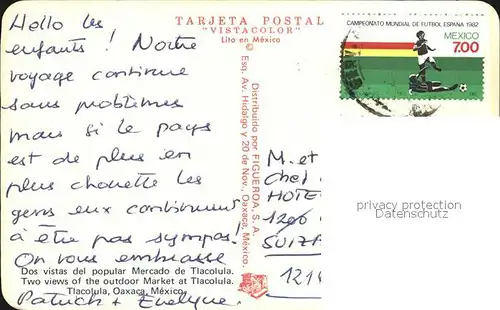 Hello les
enfants ! Notre
voyage continue
sans problèmes
mais si le pays
est de plus en
plus chouette les
gens eux continuent
à être pas sympas !
On vous embrasse
Patrick + Evelyne.
Dos vistas del popular Mercado de Tlacolula.
Two views of the outdoor Market at Tlacolula.
Tlacolula, Oaxaca, México.
TARJETA POSTAL
"VISTACOLOR"
Lito en México
Distribuido por FIGUEROA, S. A.
Esq. Av. Hidalgo y 20 de Nov., Oaxaca, México.
CAMPEONATO MUNDIAL DE FUTBOL ESPAÑA 1982
MEXICO
7.00
M. et
HOTE
1206
SUIZA
121
privacy protection
Datenschutz